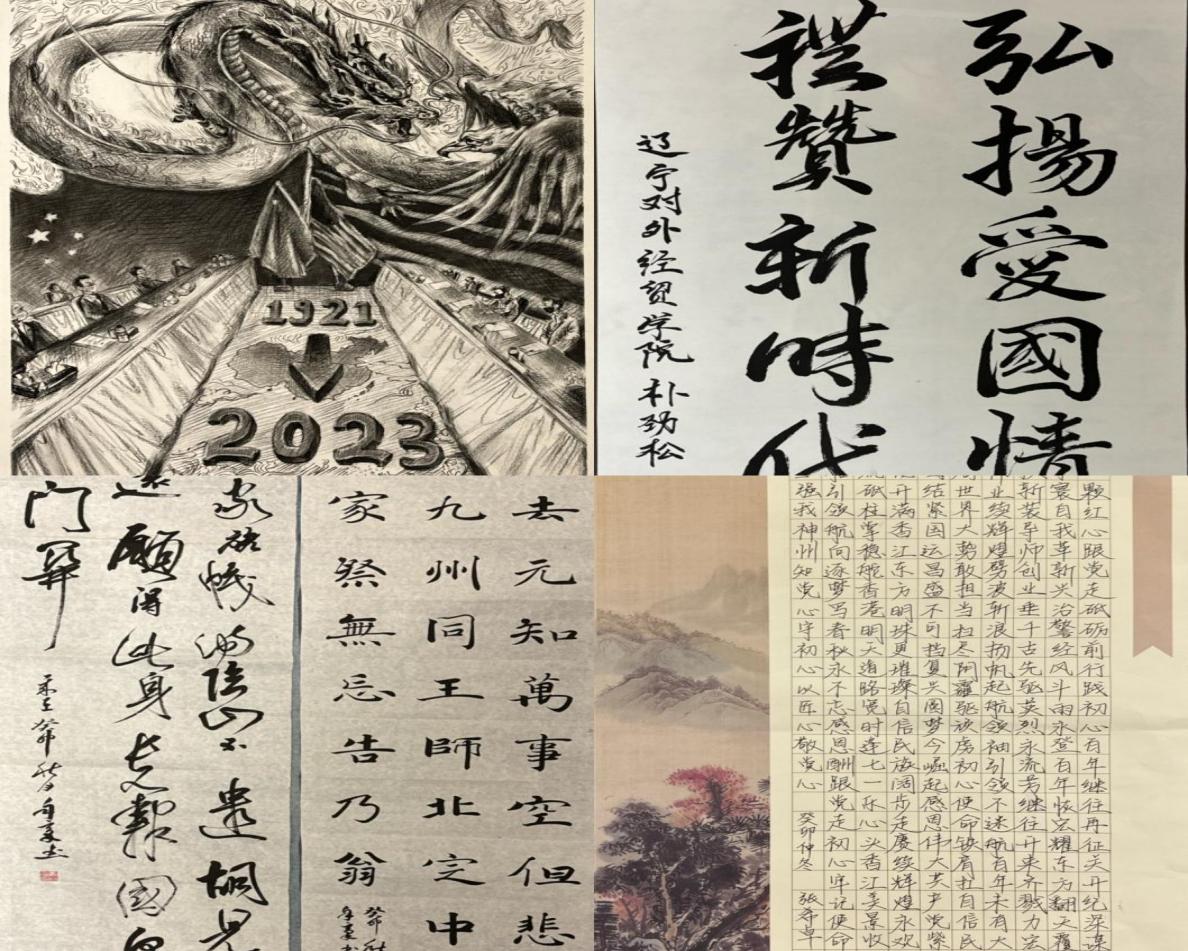 1921
2023
弘揚愛國情
禮贊新時代
辽宁对外经贸学院 朴劲松
去元知萬事空但悲
九州同王師北定中
家祭無忘告乃翁
癸卯秋
滿陰山不遣胡兒
願得此身長報國
門
癸卯秋
颗红心跟党走砥砺前行践初心百年继往再征关开纪深谋
寰自我革新兴治警经风斗雨永登百年恢宏耀东方翻天覆
新装导师创业垂千古先驱英烈永流芳继往开来齐戮力宏
业续辉煌劈波斩浪扬帆起航领袖引领不迷航百年未有大
世界大势敢担当扫尽阴霾驱初心使命铁肩担自信民
结紧国运昌盛不可挡复兴圆梦今崛起感恩伟大共产党紫
开满香江东方明珠更璀璨自信民族阔步走赓续辉煌永欢
流砥柱掌稳舵香港明天道路宽时逢七一心头香江美景收
引领航向逐梦写春秋永不忘感恩酬跟党走初心牢记使命
强我神州知党心守初心以匠心敬党心 癸卯仲冬 张希卓